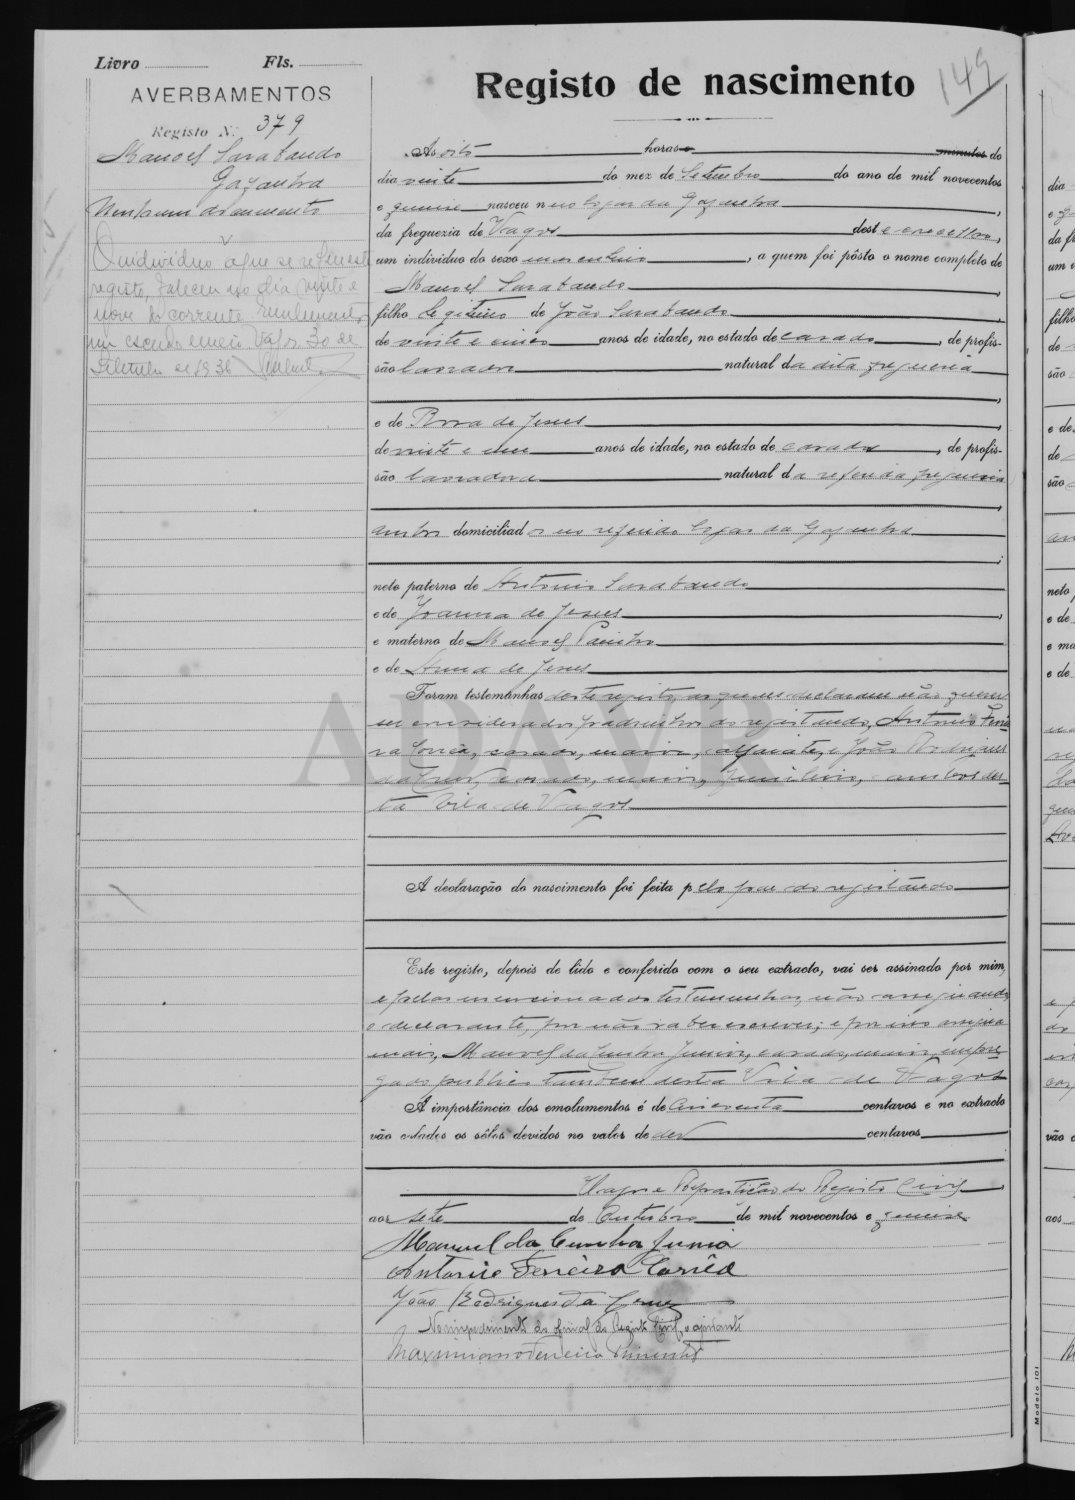 Livro Fls.
AVERBAMENTOS
Registo N.º 379
Manoel Sarabando
Gafanha
Nenhum documento
O individuo a que se refere este
registo, faleceu no dia vinte e
nove do corrente. Emolumentos
um escudo e meio. Vagos, 30 de
de 1936
149
Registo de nascimento
Ás oito horas minutos do
dia vinte do mez de Setembro do ano de mil novecentos
e quinse nasceu no logar da Gafanha,
da freguezia de Vagos deste concelho,
um individuo do sexo masculino, a quem foi pôsto o nome completo de
Manoel Sarabando,
filho legitimo de João Sarabando,
de vinte e cinco anos de idade, no estado de casado, de profis-
são lavrador natural da dita freguesia
e de Rosa de Jesus
de vinte e um anos de idade, no estado de casada, de profis-
são lavradora natural da referida freguesia
ambos domiciliados no referido logar da Gafanha
neto paterno de Antonio Sarabando
e de Joanna de Jesus,
e materno de Manoel
e de Anna de Jesus
Foram testemunhas deste registo, as quaes declararam não querer
ser considerados padrinhos do registando, Antonio Ferrei-
ra Corrêa, casado, maior, alfaiate, e João Rodrigues
da Cruz, casado, maior, funileiro, ambos des-
ta Vila de Vagos
A declaração do nascimento foi feita pelo pae do registando
Este registo, depois de lido e conferido com o seu extracto, vai ser assinado por mim,
e pelas mencionadas testemunhas, não assignando
o declarante, por não saber escrever; e por isso assigna
mais, Manoel da Cunha Junior, casado, maior, empre-
gado publico tambem desta Vila de Vagos
A importância dos emolumentos é de cincoenta centavos e no extracto
vão colados os sêlos devidos no valor de dez centavos
Vagos e Repartição do Registo Civil,
aos sete de Outubro de mil novecentos e quinse
Manuel da Cunha Junior
Antonio Ferreira Corrêa
João Rodrigues da Cruz
No impedimento do oficial do Registo Civil, o ajudante
Maximiano Ferreira Pimentel
ADAVR
Modelo 101